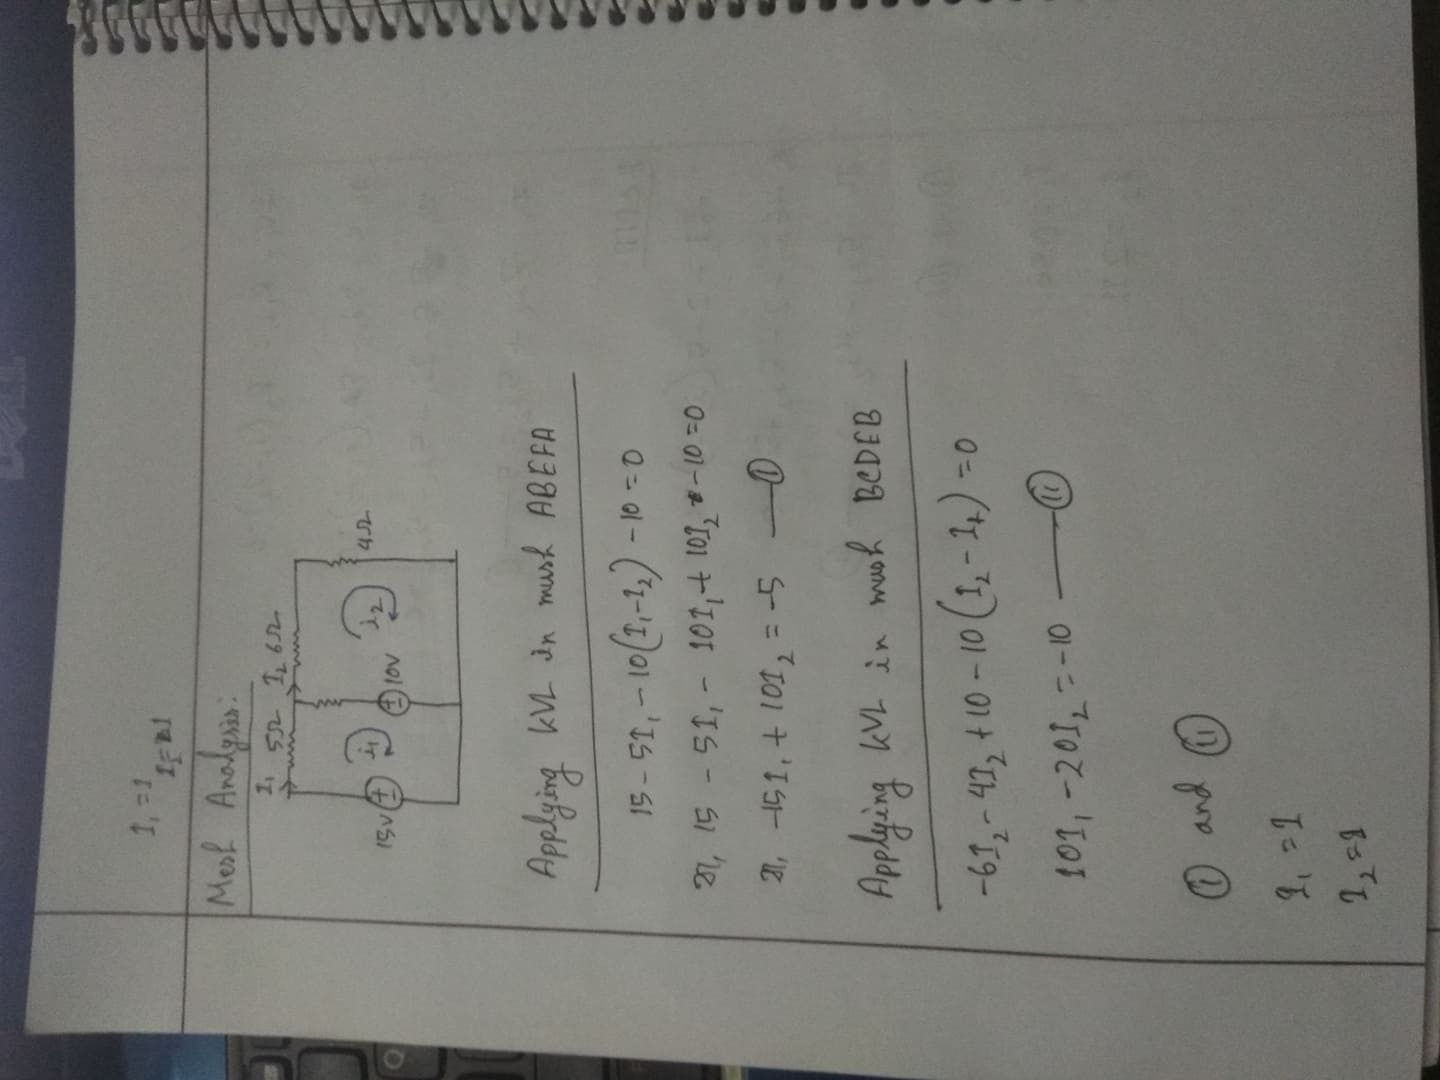 I₁ = 1
I = 1
Mesh Analysis:
I₁ 5Ω I₂ 6Ω
15V i₁ 10V i₂ 4Ω
Applying KVL in mush ABEFA
15 - 5I₁ - 10(I₁-I₂) - 10 = 0
15 - 5I₁ - 10I₁ + 10I₂ - 10 = 0
-15I₁ + 10I₂ = -5 — (i)
Applying KVL in mush BCDEB
-6I₂ - 4I₂ + 10 - 10(I₂ - I₁) = 0
10I₁ - 20I₂ = -10 — (ii)
(i) and (ii)
I₁ = 1
I₂ = 1